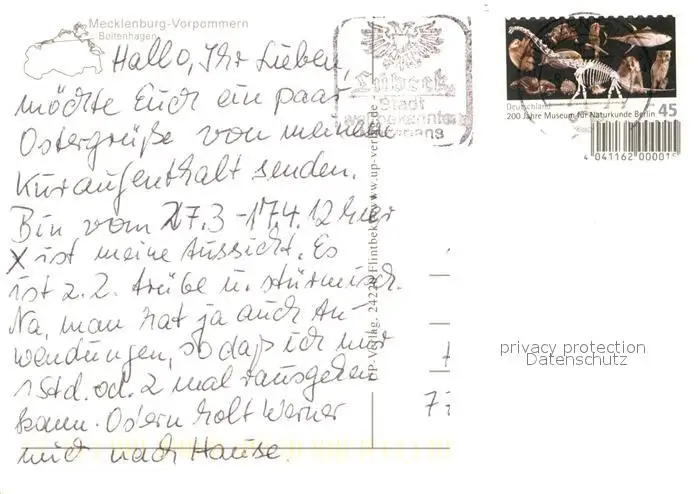 Mecklenburg-Vorpommern
Boltenhagen
Hallo, Ihr Lieben,
möchte Euch ein paar
Ostergrüße von meinem
Kuraufenthalt senden.
Bin vom 27.3 - 17.4.12 hier
X ist meine Aussicht. Es
ist z. Z. trübe u. stürmisch.
Na, man hat ja auch An-
wendungen, so daß ich nur
1 Std. od. 2 mal rausgehen
kann. Ostern holt Werner
mich nach Hause.
UP-Verlag, 24220 Flintbek, www.up-verlag.de
Lübeck
Stadt
Deutschland
200 Jahre Museum für Naturkunde Berlin 45
4 041162 00001
privacy protection
Datenschutz